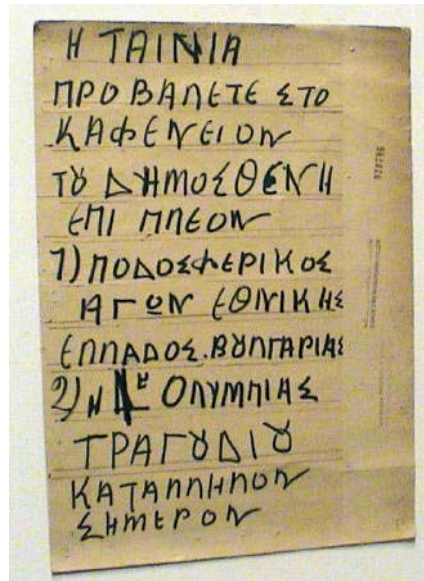 Η ΤΑΙΝΙΑ
ΠΡΟΒΑΛΕΤΕ ΣΤΟ
ΚΑΦΕΝΕΙΟΝ
ΤȢ ΔΗΜΟΣΘΕΝΗ
ΕΠΙ ΠΛΕΟΝ
1) ΠΟΔΟΣΦΕΡΙΚΟΣ
ΑΓΩΝ ΕΘΝΙΚΗΣ
ΕΛΛΑΔΟΣ.ΒȢΛΓΑΡΙΑΣ
2) Η ΟΛΥΜΠΙΑΣ
ΤΡΑΓȢΔΙȢ
ΚΑΤΑΛΛΗΛΟΝ
ΣΗΜΕΡΟΝ